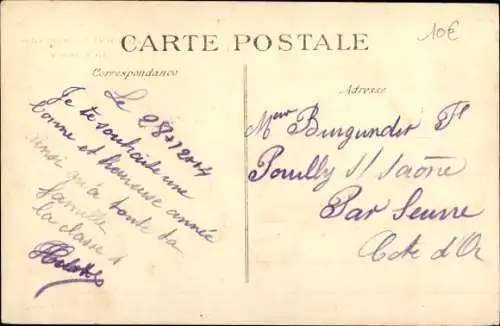 CARTE POSTALE
10€
Correspondance
Adresse
Le 28
Je te souhaite une
bonne et heureuse année
ainsi qu'a toute ta
famille
la classe
Meur Burgunder
Pouilly s/ saône
Par Seurre
Cote d'Or